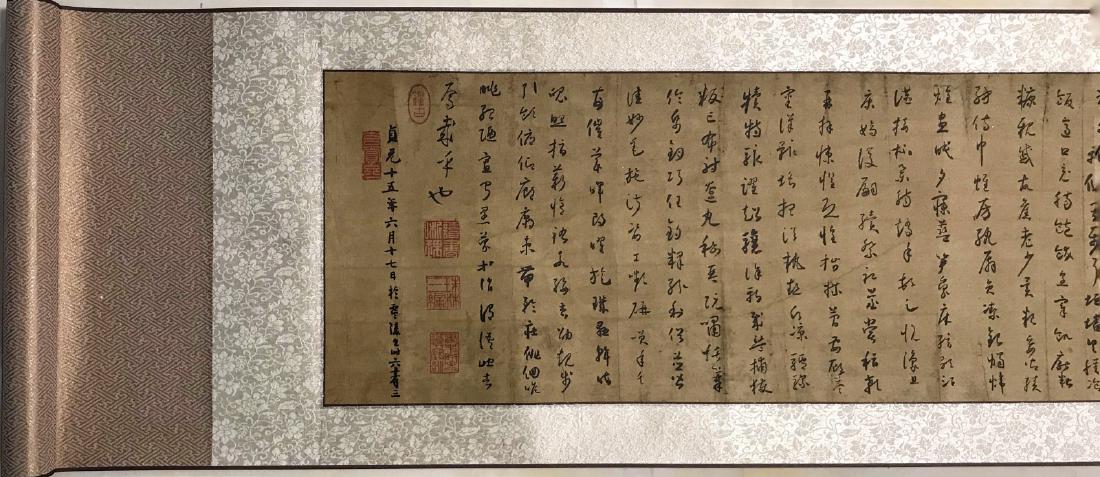 飯適口充腸飽飫烹宰飢厭糟
糠親戚故舊老少異糧妾御績
紡侍巾帷房紈扇圓潔銀燭煒
煌晝眠夕寐藍筍象床絃歌酒
讌接杯舉觴矯手頓足悅豫且
康嫡後嗣續祭祀蒸嘗稽顙
再拜悚懼恐惶牋牒簡要顧答
審詳骸垢想浴執熱願涼驢騾
犢特駭躍超驤誅斬賊盜捕獲
叛亡布射遼丸嵇琴阮嘯恬筆
倫紙鈞巧任釣釋紛利俗並皆
佳妙毛施淑姿工顰妍笑年矢
每催曦暉朗曜旋璣懸斡晦
魄環照指薪修祜永綏吉劭矩步
引領俯仰廊廟束帶矜莊徘徊瞻
眺孤陋寡聞愚蒙等誚謂語助者
焉哉乎也
貞元十五年六月十七日於零陵書時六十有三